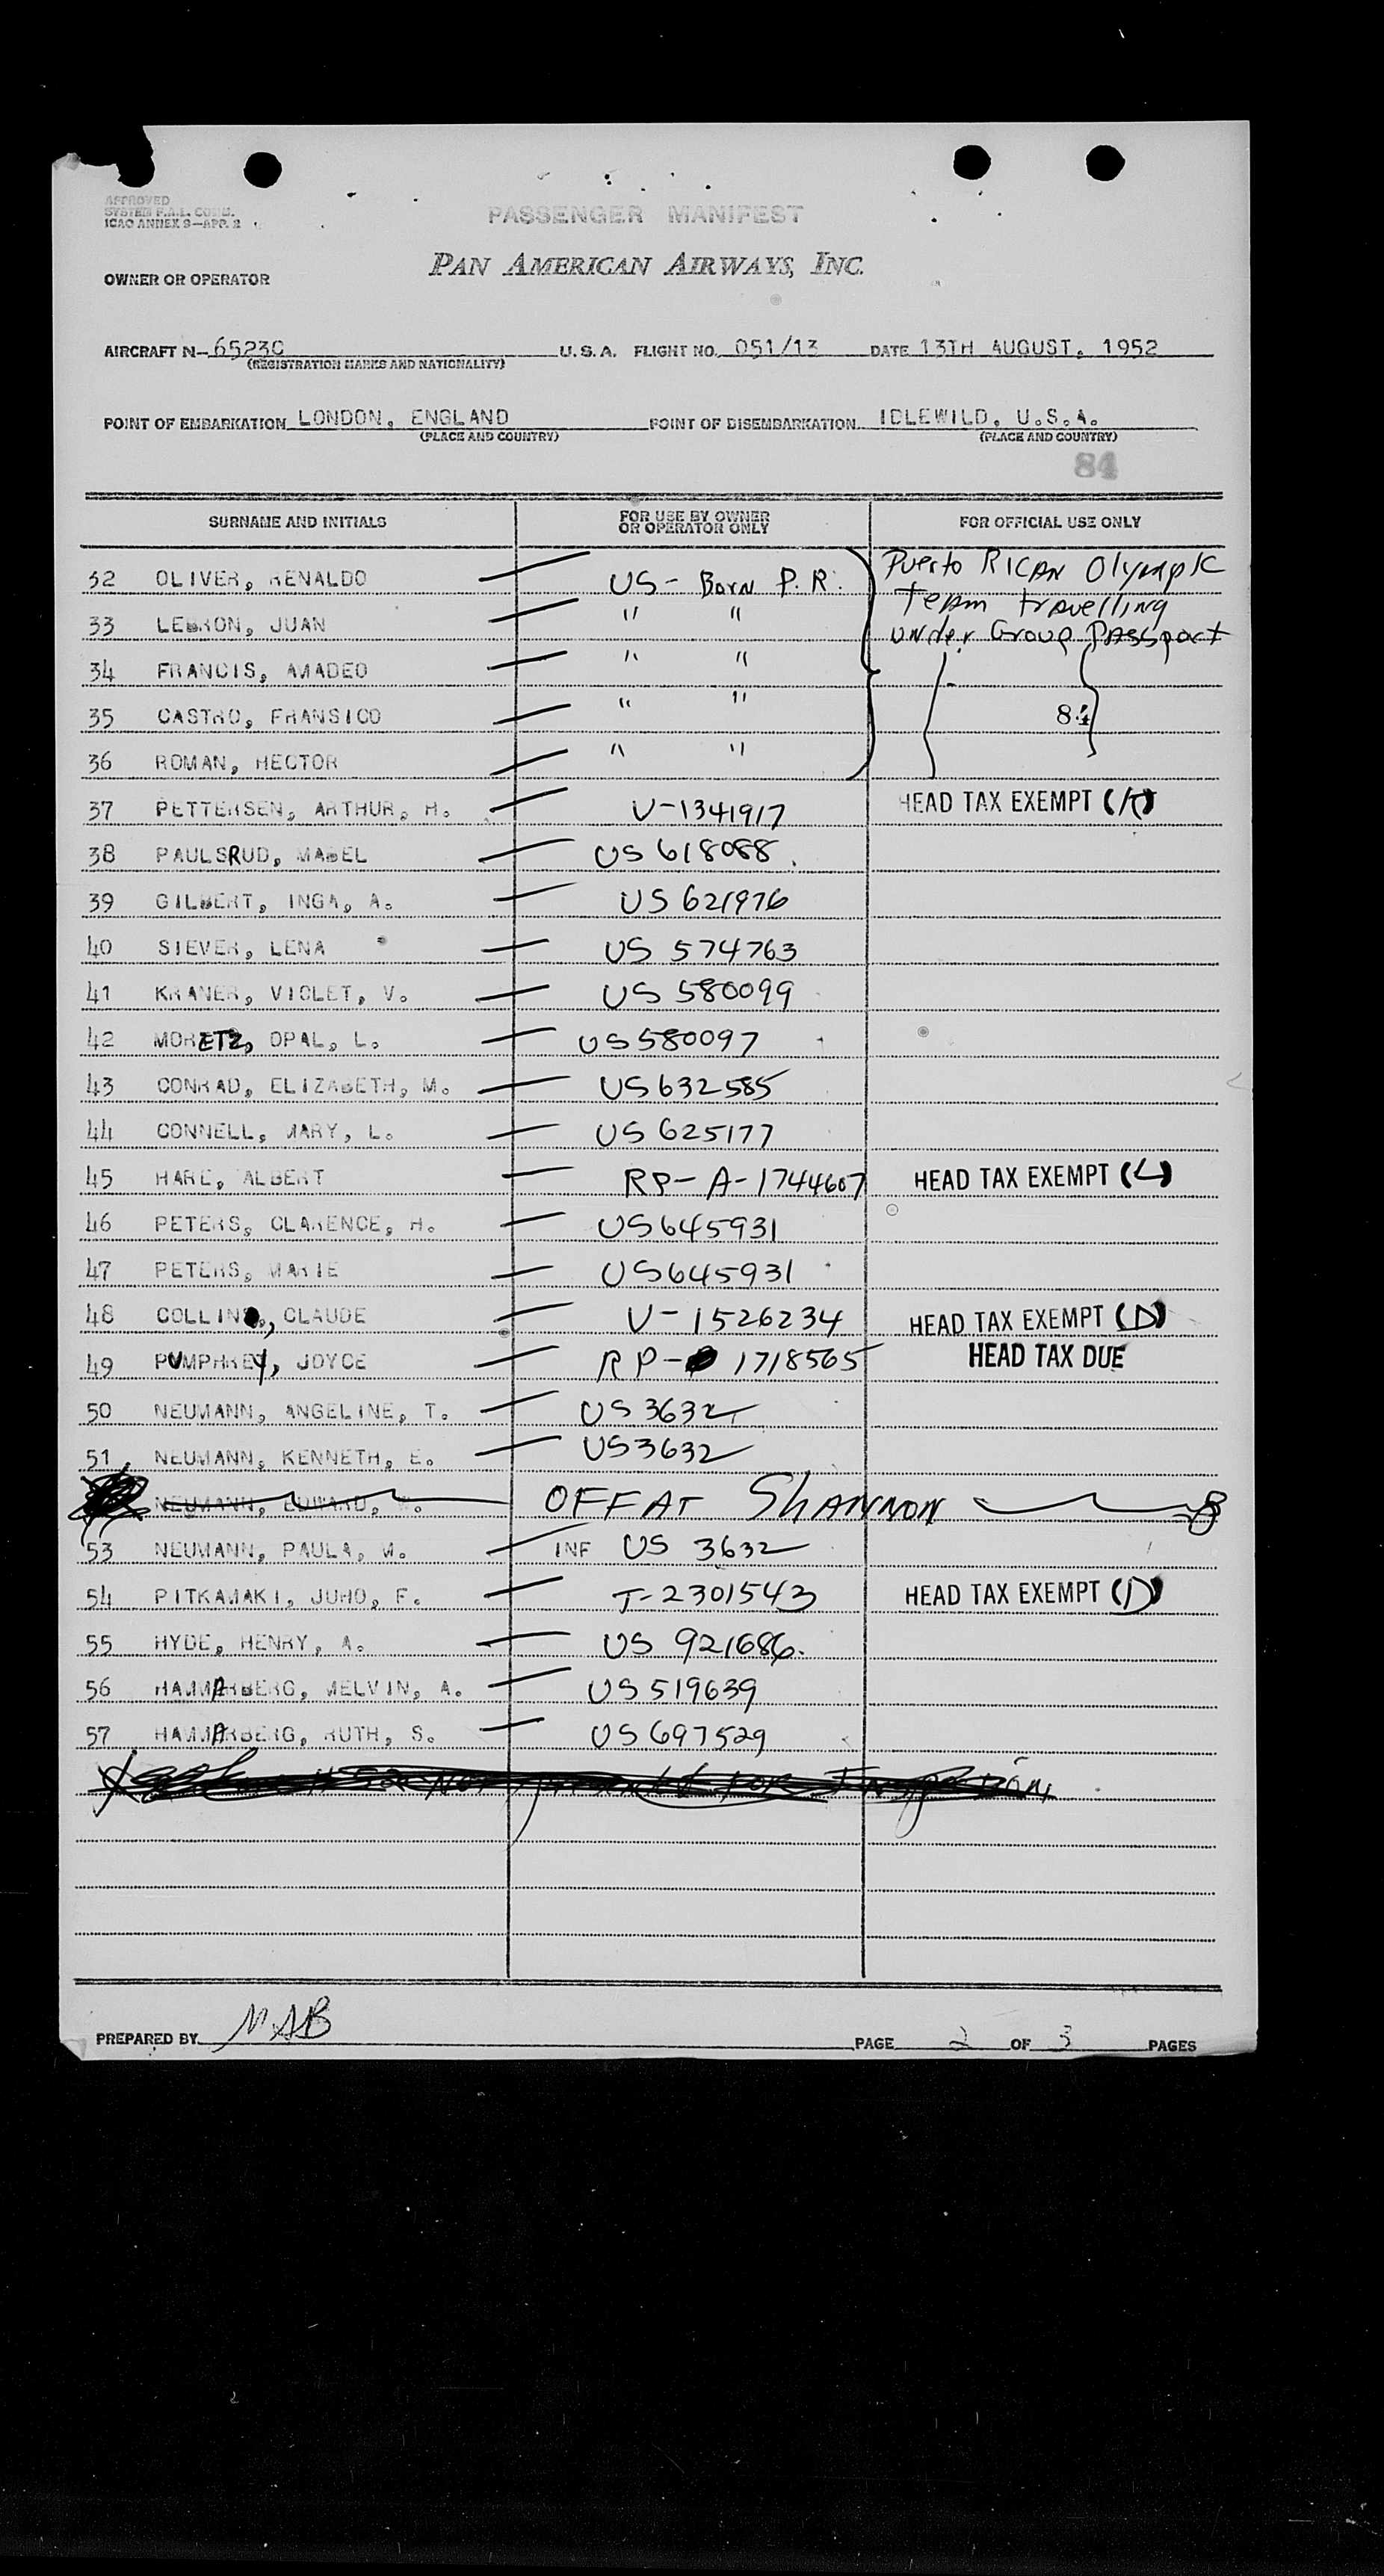 APPROVED
SYSTEM P.A.L. COMM.
ICAO ANNEX 9—APP. 2
PASSENGER MANIFEST
PAN AMERICAN AIRWAYS, INC.
OWNER OR OPERATOR
AIRCRAFT N- 65230 U.S.A. FLIGHT NO. 051/13 DATE 13TH AUGUST. 1952
(REGISTRATION MARKS AND NATIONALITY)
POINT OF EMBARKATION LONDON, ENGLAND POINT OF DISEMBARKATION IDLEWILD, U.S.A.
(PLACE AND COUNTRY) (PLACE AND COUNTRY)
84
SURNAME AND INITIALS FOR USE BY OWNER OR OPERATOR ONLY FOR OFFICIAL USE ONLY
32 OLIVER, RENALDO US - Born P.R. Puerto RICAN Olympic
33 LEBRON, JUAN " " Team travelling
under Group Passport
34 FRANCIS, AMADEO " "
35 CASTRO, FRANSICO " " 84
36 ROMAN, HECTOR " "
37 PETTERSEN, ARTHUR, H. V-1341917 HEAD TAX EXEMPT
38 PAULSRUD, MABEL US 618088
39 GILBERT, INGA, A. US 621976
40 SIEVER, LENA US 574763
41 KRANER, VIOLET, V. US 580099
42 MORETZ, OPAL, L. US 580097
43 CONRAD, ELIZABETH, M. US 632585
44 CONNELL, MARY, L. US 625177
45 HARE, ALBERT RP-A-1744607 HEAD TAX EXEMPT (L)
46 PETERS, CLARENCE, H. US 645931
47 PETERS, MARIE US 645931
48 COLLINS, CLAUDE V-1526234 HEAD TAX EXEMPT (D)
49 PUMPHREY, JOYCE RP- 1718565 HEAD TAX DUE
50 NEUMANN, ANGELINE, T. US 3632
51 NEUMANN, KENNETH, E. US 3632
NEUMANN, EDWARD, OFF AT SHANNON
53 NEUMANN, PAULA, M. INF US 3632
54 PITKAMAKI, JUHO, F. T-2301543 HEAD TAX EXEMPT (D)
55 HYDE, HENRY, A. US 921686.
56 HAMMARBERG, MELVIN, A. US 519639
57 HAMMARBERG, RUTH, S. US 697529
PREPARED BY MAB PAGE 2 OF 3 PAGES